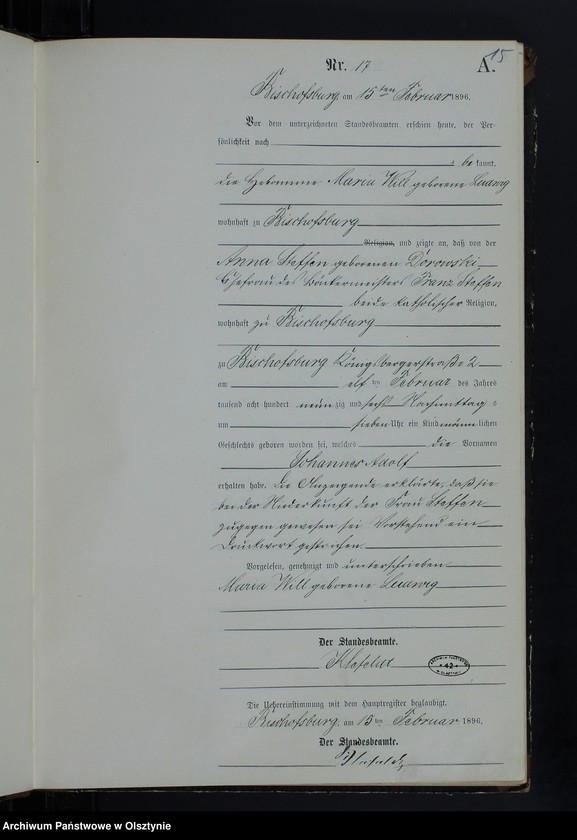 15
Nr. 17 A.
Bischofsburg, am 15ten Februar 1896.
Vor dem unterzeichneten Standesbeamten erschien heute, der Per-
sönlichkeit nach
be kannt,
die Hebamme Maria Will geborene Ludwig
wohnhaft zu Bischofsburg
Religion, und zeigte an, daß von der
Anna Steffen geborenen Dorowski,
Ehefrau des Bäckermeisters Franz Steffen
beide katholischer Religion,
wohnhaft zu Bischofsburg
zu Bischofsburg Königsbergerstraße 2
am elf ten Februar des Jahres
tausend acht hundert neunzig und sechs Nachmittag s
um sieben Uhr ein Kind männlichen
Geschlechts geboren worden sei, welches die Vornamen
Johannes Adolf
erhalten habe. Die Anzeigende erklärte, daß sie
bei der Niederkunft der Frau Steffen
zugegen gewesen sei. Vorstehend ein
Druckwort gestrichen.
Vorgelesen, genehmigt und unterschrieben
Maria Will geborene Ludwig
Der Standesbeamte.
ARCHIWUM PAŃSTWOWE
* 42 *
W OLSZTYNIE
Die Uebereinstimmung mit dem Hauptregister beglaubigt.
Bischofsburg, am 15ten Februar 1896.
Der Standesbeamte.
Archiwum Państwowe w Olsztynie